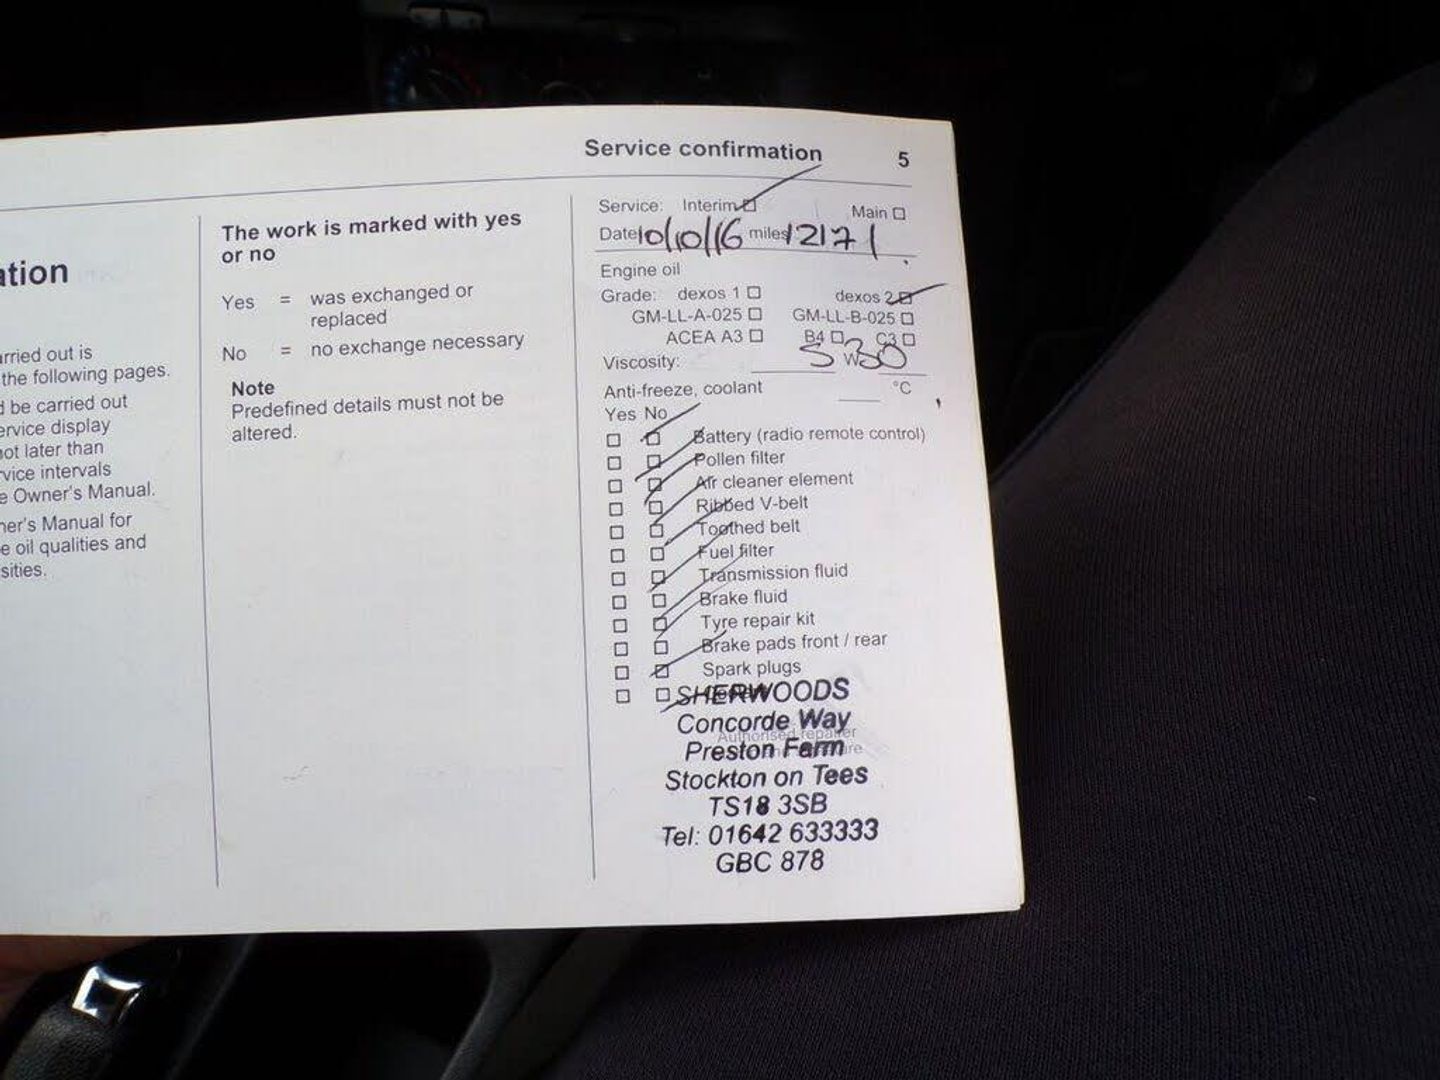 Service confirmation 5
ation
arried out is
the following pages.
d be carried out
ervice display
not later than
rvice intervals
e Owner's Manual.
ner's Manual for
e oil qualities and
sities.
The work is marked with yes
or no
Yes = was exchanged or
replaced
No = no exchange necessary
Note
Predefined details must not be
altered.
Service: Interim Main
Date 10/10/16 miles 12171
Engine oil
Grade: dexos 1 dexos 2
GM-LL-A-025 GM-LL-B-025
ACEA A3 B4 C3
Viscosity: 5 W 30
Anti-freeze, coolant °C
Yes No
Battery (radio remote control)
Pollen filter
Air cleaner element
Ribbed V-belt
Toothed belt
Fuel filter
Transmission fluid
Brake fluid
Tyre repair kit
Brake pads front / rear
Spark plugs
SHERWOODS
Concorde Way
Authorised repairer
Preston Farm
Stockton on Tees
TS18 3SB
Tel: 01642 633333
GBC 878